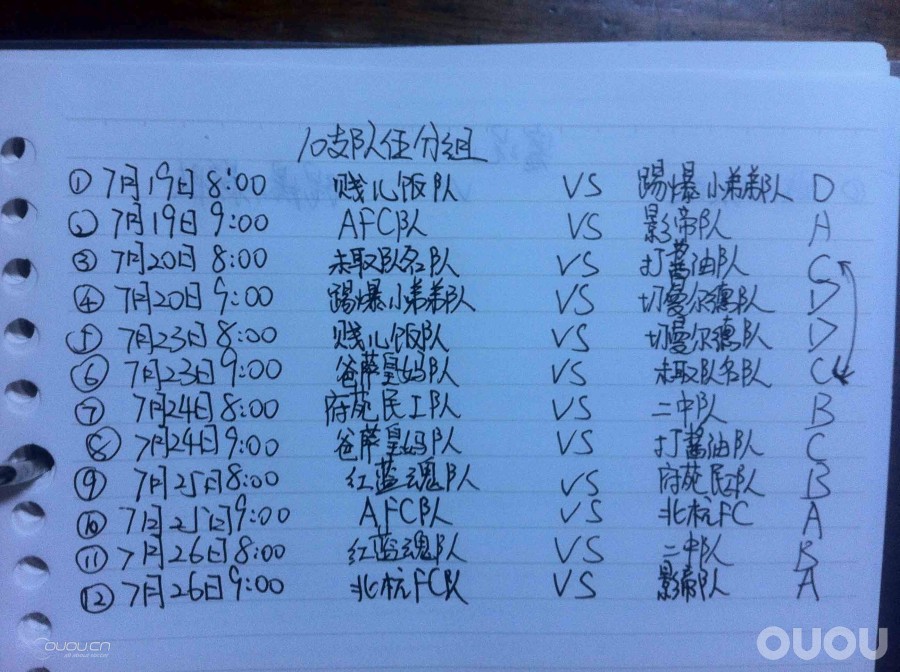 10支队伍分组
① 7月19日 8:00 贱儿饭队 VS 踢爆小弟弟队 D
② 7月19日 9:00 AFC队 VS 影帝队 A
③ 7月20日 8:00 未取队名队 VS 打酱油队 C
④ 7月20日 9:00 踢爆小弟弟队 VS 切曼尔德队 D
⑤ 7月23日 8:00 贱儿饭队 VS 切曼尔德队 D
⑥ 7月23日 9:00 爸萨皇妈队 VS 未取队名队 C
⑦ 7月24日 8:00 府苑民工队 VS 二中队 B
⑧ 7月24日 9:00 爸萨皇妈队 VS 打酱油队 C
⑨ 7月25日 8:00 红蓝魂队 VS 府苑民工队 B
⑩ 7月25日 9:00 AFC队 VS 北杭FC A
⑪ 7月26日 8:00 红蓝魂队 VS 二中队 B
⑫ 7月26日 9:00 北杭FC队 VS 影帝队 A
OUOU.CN
OUOU